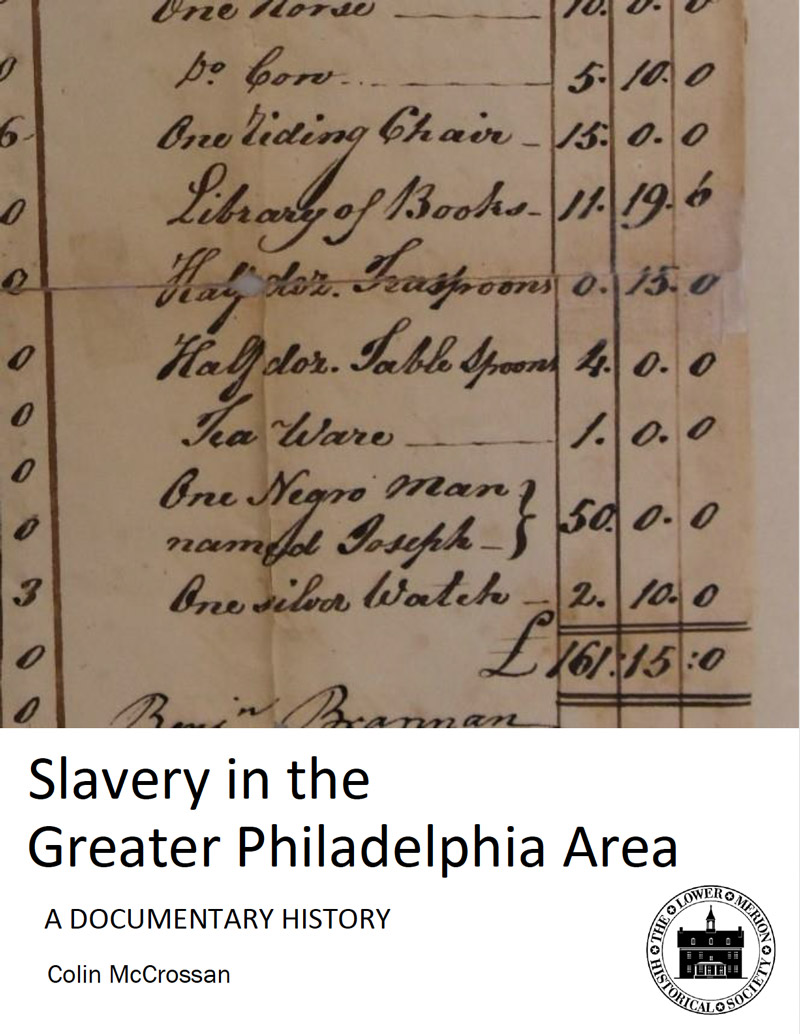 One Horse 10. 0. 0
0 Do. Cow 5. 10. 0
6 One Riding Chair 15. 0. 0
0 Library of Books 11. 19. 6
0 Half doz. Teaspoons 0. 15. 0
0 Half doz. Table Spoons 4. 0. 0
0 Tea Ware 1. 0. 0
0 One Negro Man
0 named Joseph } 50. 0. 0
3 One silver Watch 2. 10. 0
0 £ 161:15:0
0 Benjn Brannan
Slavery in the
Greater Philadelphia Area
A DOCUMENTARY HISTORY
Colin McCrossan
THE LOWER MERION
HISTORICAL SOCIETY